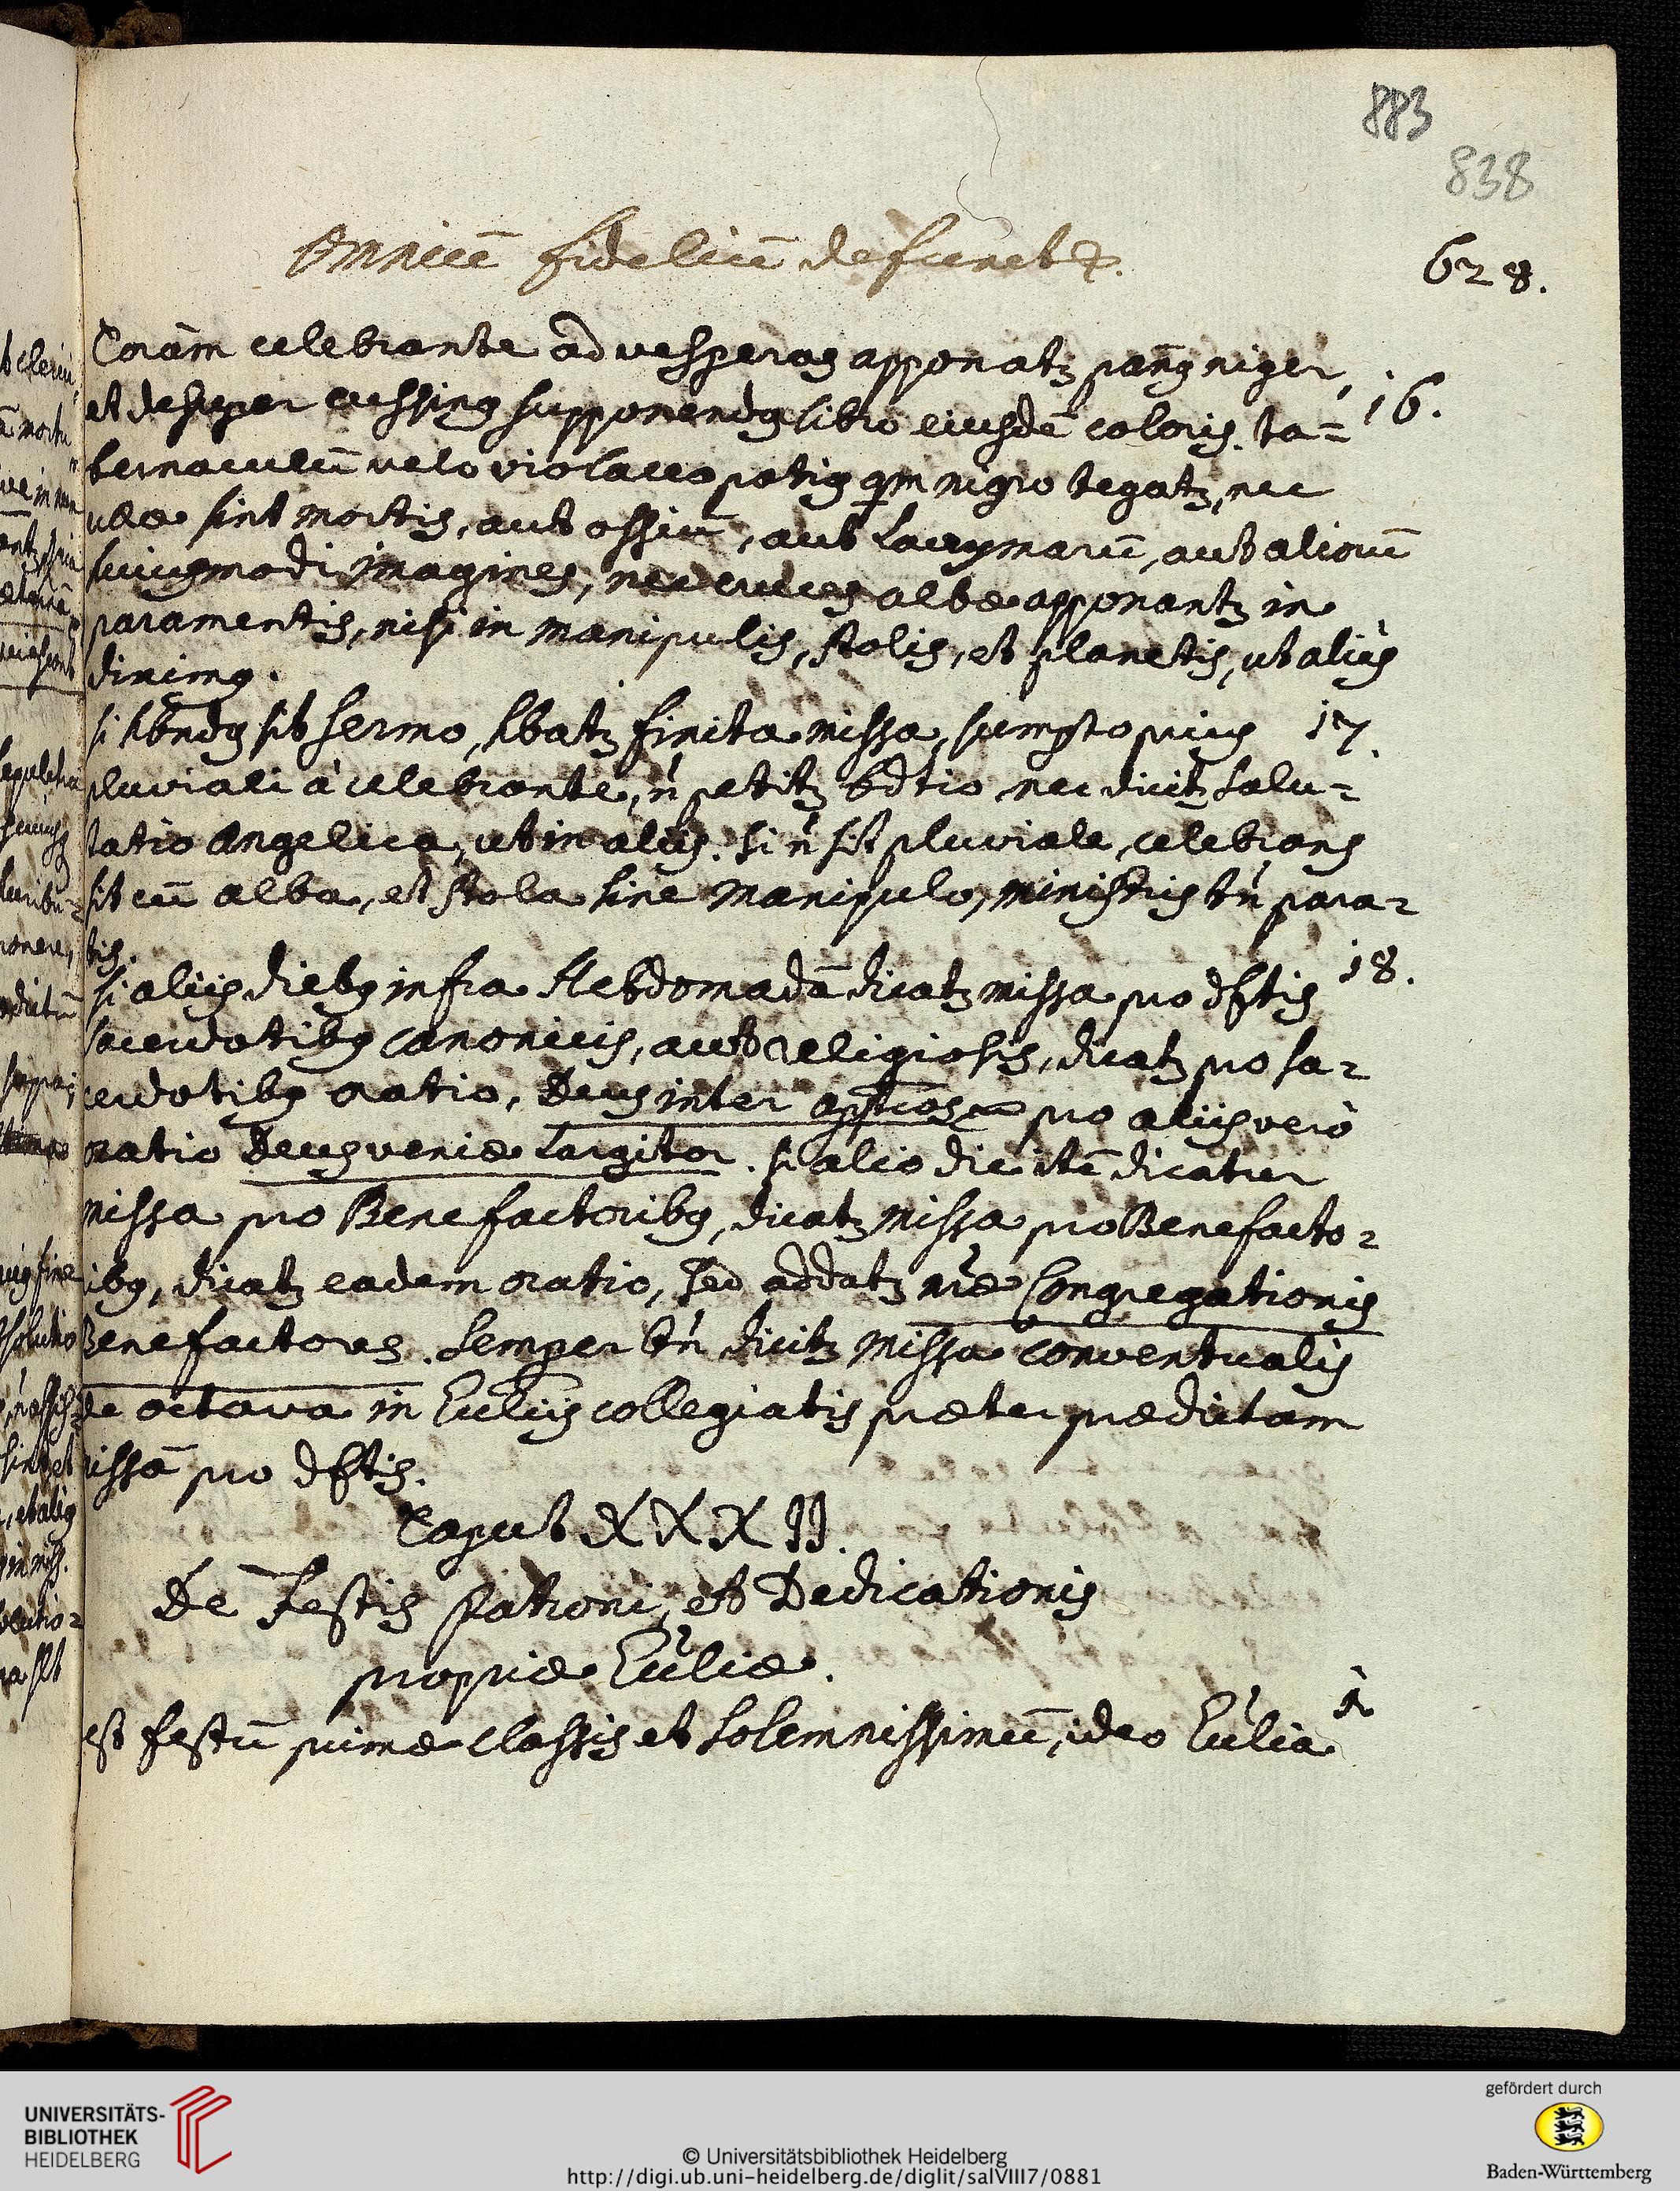 883
838
omniū fideliū defunctꝝ.
628.
Corām celebrante ad vesperas apponatꝫ pān9 niger,
et desuper cussin9 supponend9 libro eiusdē coloris. ta=
16.
bernaculū velo violaceo poti9 qm nigro tegatꝫ, nec
ullæ sint mortis, aut ossiū, aut lacrymarū, aut aliorū
huiusmodi imagines, nec cruces albæ apponantꝫ in
paramentis, nisi in manipulis, stolis, et planetis, ut aliàs
dixim9.
si hbnd9 sit sermo, hbatꝫ finita missa, sumpto prius
17.
pluviali à celebrante, ñ petitꝫ bdtio nec dicitꝫ salu=
tatio Angelica, ut in aliis. si ñ sit pluviale, celebrans
sit cū alba, et stola sine manipulo, ministris tñ para=
tis.
18.
si aliis dieb9 infra Hebdomadā dicatꝫ missa pro dfctis
sacerdotib9 canonicis, aut religiosis, dicatꝫ pro sa=
cerdotib9 oratio, Deus inter apꝉicos, pro aliis verò
oratio Deus veniæ largitor. si alio die itē dicatur
missa pro Benefactorib9, dicatꝫ missa pro Benefacto=
rib9, dicatꝫ eadem oratio, sed addatꝫ nr̄æ Congregationis
Benefactores. semper tñ dicitꝫ missa conventualis
de octava in Ecc̄liis collegiatis præter prædictam
missā pro dfctis.
Caput XXXII.
De Festis Patroni, et Dedicationis
propriæ Ecc̄liæ.
1
est festū primæ classis et solemnissimū, ideo Ecc̄lia
UNIVERSITÄTS-
BIBLIOTHEK
HEIDELBERG
© Universitätsbibliothek Heidelberg
http://digi.ub.uni-heidelberg.de/diglit/salVIII7/0881
gefördert durch
Baden-Württemberg